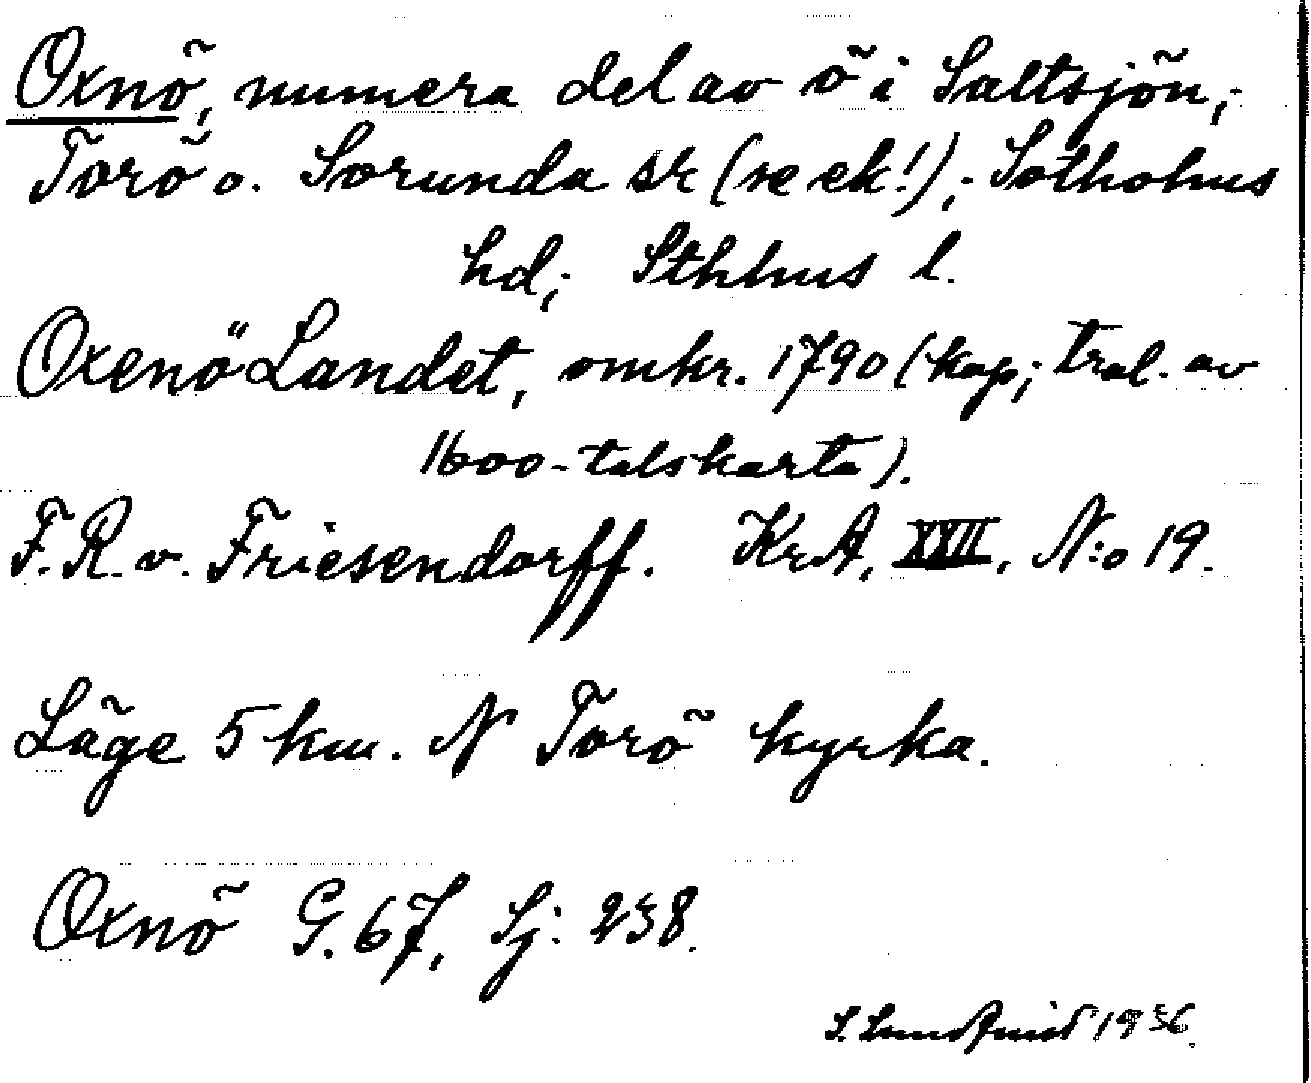 Oxnö, numera del av ö i Saltsjön,;
Torö o. Sorunda sr (se ek!),; Sotholms
hd; Sthlms l.
Oxenö Landet, omkr. 1790 (kop; trol. av
1600-talskarta).
F.R. v. Friesendorff. KrA, XXII, N:o 19.
Läge 5 km. N Torö kyrka.
Oxnö G. 67, Sj: 238.
S. Lundquist 1936.